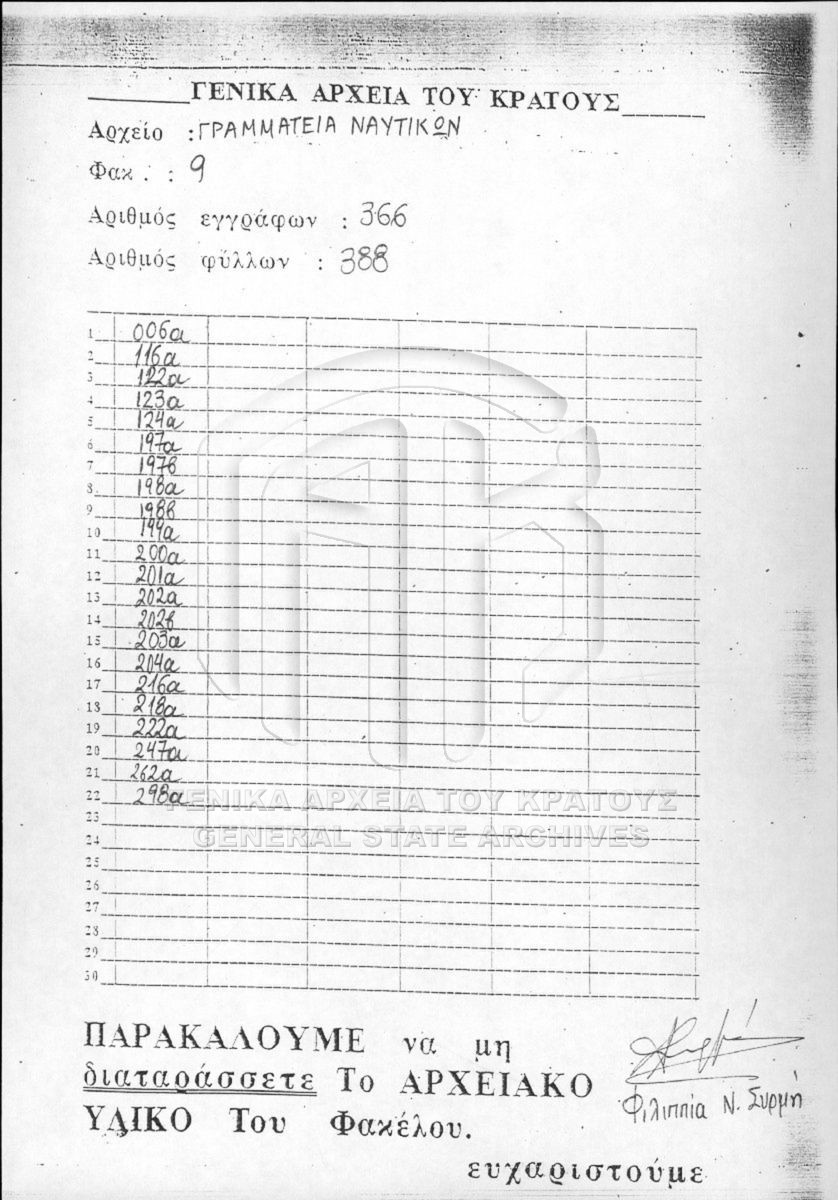 ΓΕΝΙΚΑ ΑΡΧΕΙΑ ΤΟΥ ΚΡΑΤΟΥΣ
Αρχείο : ΓΡΑΜΜΑΤΕΙΑ ΝΑΥΤΙΚΩΝ
Φακ. : 9
Αριθμός εγγράφων : 366
Αριθμός φύλλων : 388
1 006α
2 116α
3 122α
4 123α
5 124α
6 197α
7 197β
8 198α
9 198β
10 199α
11 200α
12 201α
13 202α
14 202β
15 203α
16 204α
17 216α
18 218α
19 222α
20 247α
21 262α
22 298α
23
24
25
26
27
28
29
30
ΓΕΝΙΚΑ ΑΡΧΕΙΑ ΤΟΥ ΚΡΑΤΟΥΣ
GENERAL STATE ARCHIVES
ΠΑΡΑΚΑΛΟΥΜΕ να μη
διαταράσσετε Το ΑΡΧΕΙΑΚΟ
ΥΛΙΚΟ Του Φακέλου.
ευχαριστούμε
Φιλιππία Ν. Συρμή